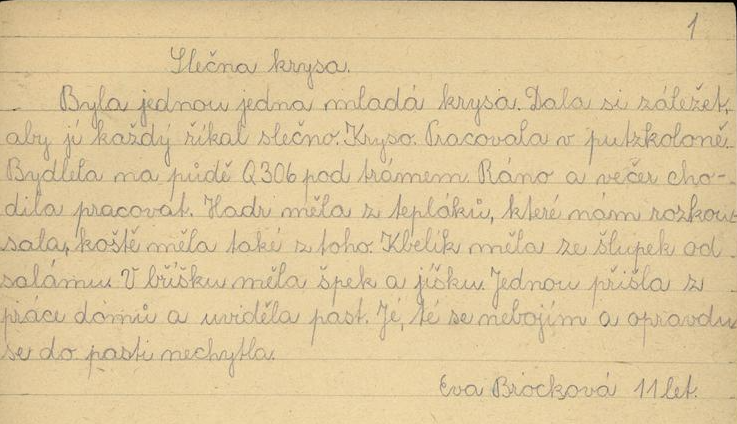 1
Slečna krysa.
Byla jednou jedna mladá krysa. Dala si záležet,
aby jí každý říkal slečno. Kryso. Pracovala v putzkoloně.
Bydlela na půdě Q306 pod trámem. Ráno a večer cho-
dila pracovat. Hadr měla z tepláků, které nám rozkou-
sala, koště měla také z toho. Kbelík měla ze šlupek od
salámu. V bříšku měla špek a jíšku. Jednou přišla z
práce domů a uviděla past. Jé, té se nebojím a opravdu
se do pasti nechytla.
Eva Brocková 11 let.